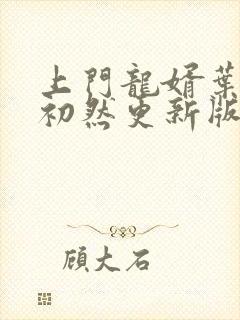 上門龍婿葉
初然更新版
顧大石